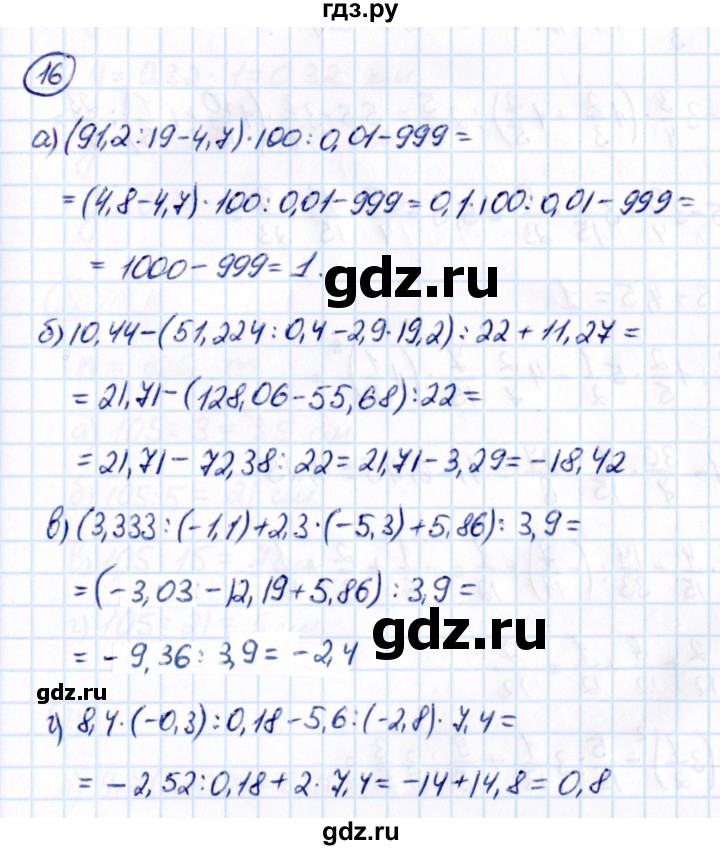 гдз.ру
16
а) (91,2:19-4,7)·100:0,01-999=
=(4,8-4,7)·100:0,01-999=0,1·100:0,01-999=
=1000-999=1.
gdz.ru
б) 10,44-(51,224:0,4-2,9·19,2):22+11,27=
=21,71-(128,06-55,68):22=
=21,71-72,38:22=21,71-3,29=-18,42
в) (3,333:(-1,1)+2,3·(-5,3)+5,86):3,9=
=(-3,03-12,19+5,86):3,9=
gdz.ru
=-9,36:3,9=-2,4
gdz.ru
г) 8,4·(-0,3):0,18-5,6:(-2,8)·7,4=
=-2,52:0,18+2·7,4=-14+14,8=0,8
gdz.ru